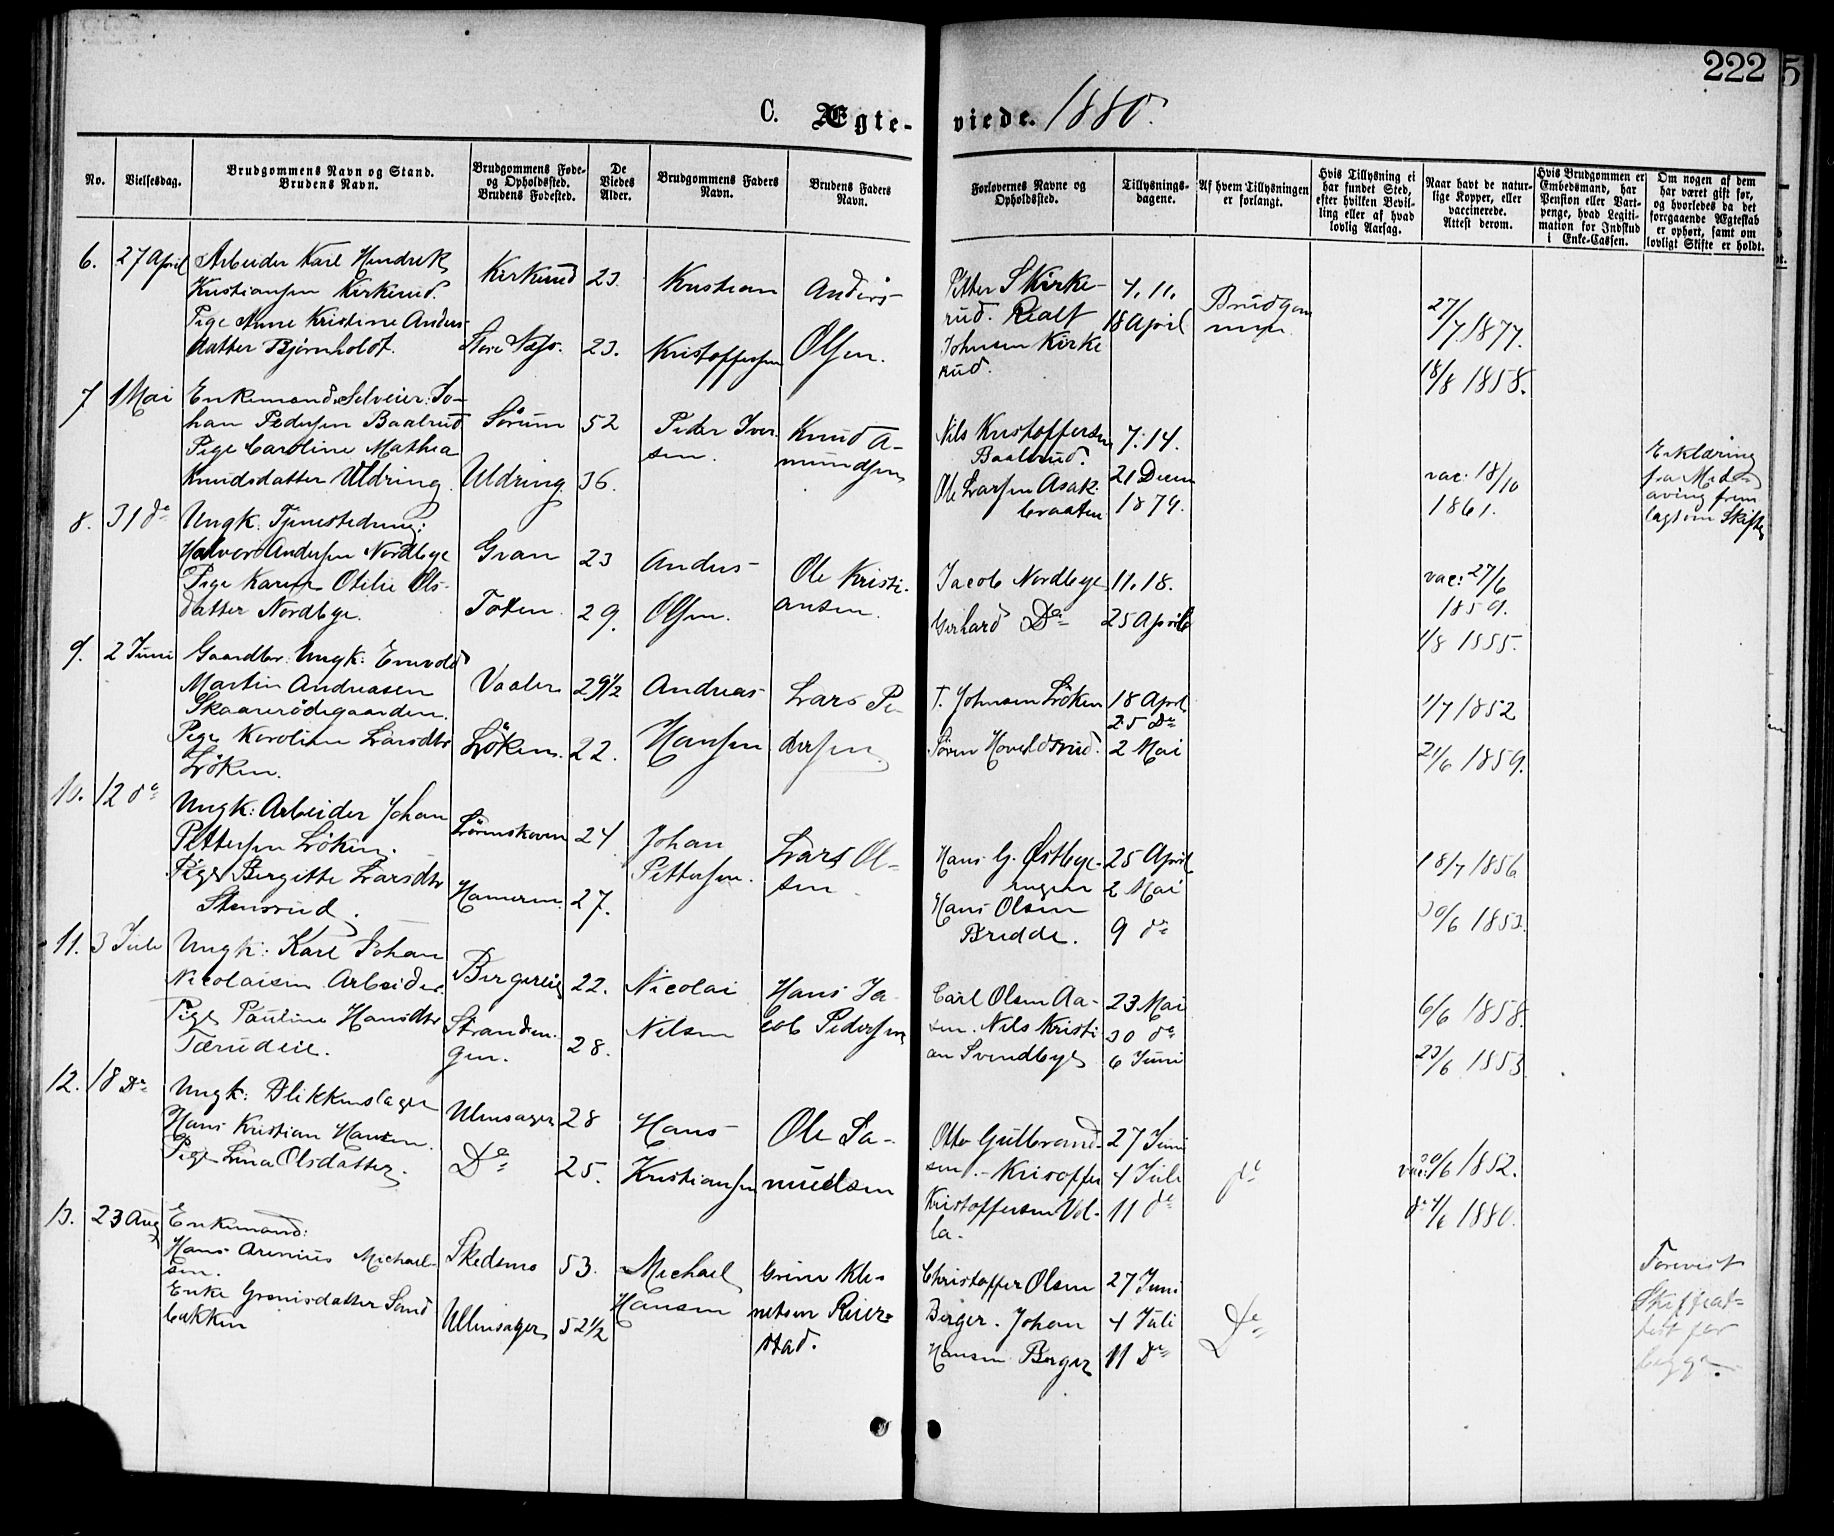 222
C. Ægte-
viede. 1880.
No.
Vielsesdag.
Brudgommens Navn og Stand.
Brudens Navn.
Brudgommens Føde-
og Opholdssted.
Brudens Fødested.
De
Viedes
Alder.
Brudgommens Faders
Navn.
Brudens Faders
Navn.
Forlovernes Navne og
Opholdssted.
Tillysnings-
dagene.
Af hvem Tillysningen
er forlangt.
Hvis Tillysning ei
har fundet Sted,
efter hvilken Bevil-
ling eller af hvad
lovlig Aarsag.
Naar havt de natur-
lige Kopper, eller
vaccinerede.
Attest derom.
Hvis Brudgommen er
Embedsmand, har
Pension eller Vart-
penge, hvad Legiti-
mation for Indskud
i Enke-Cassen.
Om nogen af dem
har været gift før,
og hvorledes da det
foregaaende Ægteskab
er ophørt, samt om
lovligt Skifte er holdt.
6. 27 April
Arbeider Karl Hendrik
Kristiansen Kirkerud.
Pige Anne Kristine Anders
datter Bjørnholdt.
Kirkerud 23.
Store Næss. 23.
Kristian
Kristoffersen
Anders
Olsen.
Petter S Kirke-
rud. Realf
Johnsen Kirke
rud.
4. 11.
18 April
Brudgom
men.
27/7 1877.
18/8 1858.
7 1 Mai
Enkemand Selveier Jo-
han Pedersen Baalrud
Pige Caroline Mathea
Knudsdatter Uldring
Sørum 52
Uldring 36.
Peder Iver
sen.
Knud A-
mundsen
Nils Kristoffersen
Baalrud.
Ole Larsen Asak
braaten
7. 14.
21 Decem
1879.
vac: 18/10
1861.
Erklæring
fra
lagt om Skifte
8. 31 de
Ungk. Tjenestedreng:
Halvor Andersen Nordbye
Pige Karen Otilie Ols-
datter Nordbye.
Gran 23
Toten. 29.
Anders
Olsen.
Ole Kristi-
ansen.
Jacob Nordbye
Gerhard Do
11. 18.
25 April
vac: 27/6
1859.
1/8 1855.
9. 2 Juni
Gaardbr. Ungk: Enevold
Martin Andreasen
Skaarerødegaarden.
Pige Karoline Larsdtr
Løken.
Vaaler 29 1/2
Løken. 22.
Andreas
Hansen
Lars Pe
dersen
T. Johnsen Løken
Søren Hovelsrud.
18 April
25 Do
2 Mai
1/7 1852
21/6 1859.
10. 12 do
Ungk: Arbeider Johan
Pettersen Løken.
Pige Bergitte Larsdtr
Stensrud.
Lørenskoven 24
Hameren. 27.
Johan
Pettersen.
Lars Ol-
sen
Hans G. Østbye-
engen
Hans Olsen
Bredde.
25 April
2 Mai
9 do
18/7 1856
30/6 1853.
11. 3 Juli
Ungk: Karl Johan
Nicolaisen Arbeider.
Pige Pauline Hansdtr
Tærudeie.
Bergereie 22.
Stranden-
gen. 28.
Nicolai
Nilsen
Hans Ja-
cob Pedersen
Carl Olsen Aa-
sen. Nils Kristi-
an Svendbye
23 Mai
30 do
6 Juni
6/6 1858.
23/6 1853
12. 18 Do
Ungk: Blikkenslager
Hans Kristian Hansen.
Pige Lina Olsdatter.
Ulensager 28
Do 25.
Hans
Kristiansen
Ole Sa-
muelsen
Otto Gulbrand-
sen. - Kristoffer
Kristoffersen Vol-
la.
27 Juni
4 Juli
11 do
do
vac: 30/6 1852.
do 4/6 1880.
13. 23 Aug
Enkemand:
Hans Arenius Michael-
sen.
Enke Grønisdatter Sand
bakken
Skedsmo 53.
Ullensager 52 1/2
Michael
Hansen
Grøni Kle-
metsen Rier-
stad.
Christoffer Olsen
Berger. Johan
Hansen Berger
27 Juni
4 Juli
11 Do
Do
Forevist
Skifteat-
test for
begge.